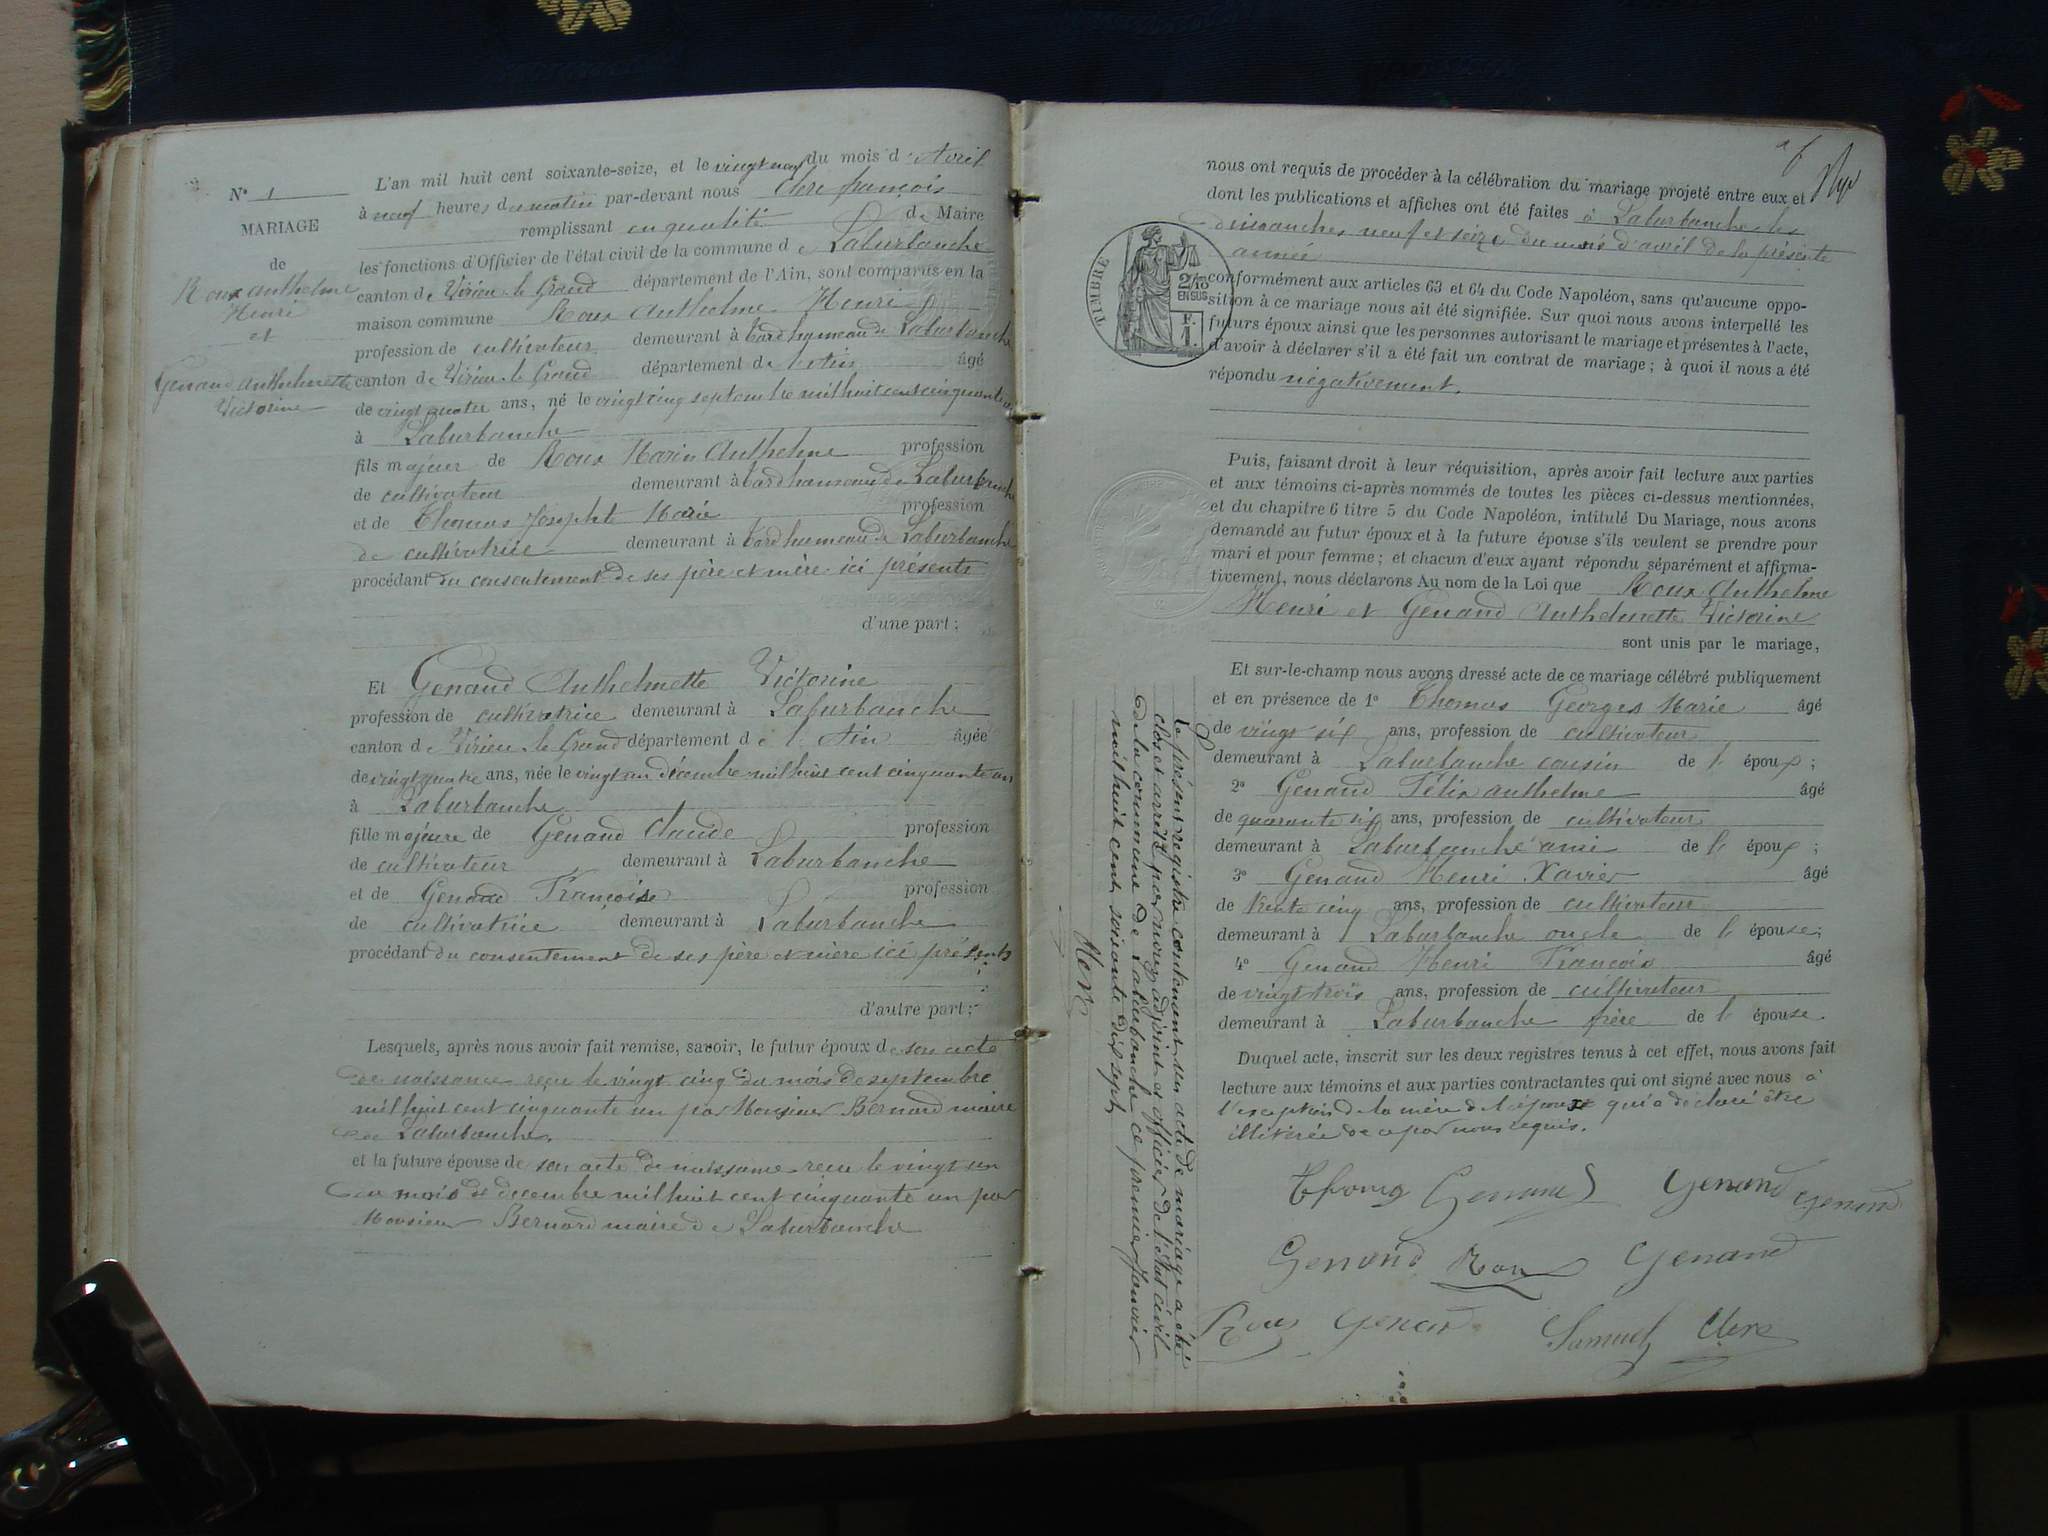 N° 1
MARIAGE
de
Roux anthelme
Henri
et
Genand anthelmette
Victorine
L'an mil huit cent soixante-seize, et le vingt neuf du mois d'Avril
à neuf heures du matin par-devant nous Clerc françois
remplissant en qualité de Maire
les fonctions d'Officier de l'état civil de la commune de Laburbanche
canton de Virieu le Grand département de l'Ain, sont comparus en la
maison commune Roux Anthelme Henri
profession de cultivateur demeurant à hameau de Laburbanche
canton de Virieu le Grand département de l'Ain âgé
de vingt quatre ans, né le vingt cinq septembre mil huit cent cinquante un
à Laburbanche
fils majeur de Roux Marin Anthelme profession
de cultivateur demeurant à hameau de Laburbanche
et de Thomas Josephte Marie profession
de cultivatrice demeurant à hameau de Laburbanche
procédant du consentement de ses père et mère ici présents
d'une part;
Et Genand Anthelmette Victorine
profession de cultivatrice demeurant à Laburbanche
canton de Virieu le Grand département de l'Ain âgée
de vingt quatre ans, née le vingt un décembre mil huit cent cinquante un
à Laburbanche
fille majeure de Genand Claude profession
de cultivateur demeurant à Laburbanche
et de Genand Françoise profession
de cultivatrice demeurant à Laburbanche
procédant du consentement de ses père et mère ici présents
d'autre part;
Lesquels, après nous avoir fait remise, savoir, le futur époux de son acte
de naissance reçu le vingt cinq du mois de septembre
mil huit cent cinquante un par Monsieur Bernard maire
de Laburbanche.
et la future épouse de son acte de naissance reçu le vingt un
du mois de decembre mil huit cent cinquante un par
Monsieur Bernard maire de Laburbanche
nous ont requis de procéder à la célébration du mariage projeté entre eux et
dont les publications et affiches ont été faites à Laburbanche les
dimanches neuf et seize du mois d'avril de la présente
année
TIMBRE
2/10
EN SUS
F.
1.
conformément aux articles 63 et 64 du Code Napoléon, sans qu'aucune oppo-
sition à ce mariage nous ait été signifiée. Sur quoi nous avons interpellé les
futurs époux ainsi que les personnes autorisant le mariage et présentes à l'acte,
d'avoir à déclarer s'il a été fait un contrat de mariage; à quoi il nous a été
répondu négativement.
Puis, faisant droit à leur réquisition, après avoir fait lecture aux parties
et aux témoins ci-après nommés de toutes les pièces ci-dessus mentionnées,
et du chapitre 6 titre 5 du Code Napoléon, intitulé Du Mariage, nous avons
demandé au futur époux et à la future épouse s'ils veulent se prendre pour
mari et pour femme; et chacun d'eux ayant répondu séparément et affirma-
tivement, nous déclarons Au nom de la Loi que Roux Anthelme
Henri et Genand Anthelmette Victorine
sont unis par le mariage,
Et sur-le-champ nous avons dressé acte de ce mariage célébré publiquement
et en présence de 1° Thomas Georges Marie âgé
de vingt six ans, profession de cultivateur
demeurant à Laburbanche cousin de l'époux;
2° Genand Félix anthelme âgé
de quarante six ans, profession de cultivateur
demeurant à Laburbanche ami de l'époux;
3° Genand Henri Xavier âgé
de trente cinq ans, profession de cultivateur
demeurant à Laburbanche oncle de l'épouse;
4° Genand Henri François âgé
de vingt trois ans, profession de cultivateur
demeurant à Laburbanche frère de l'épouse.
Duquel acte, inscrit sur les deux registres tenus à cet effet, nous avons fait
lecture aux témoins et aux parties contractantes qui ont signé avec nous à
l'exception de la mère de l'époux qui a déclaré être
illitérée de ce par nous requis.
Thomas Genand Genand Genand
Genand Roux Genand
Roux Genand Samuel Clerc
Le présent registre contenant un acte de mariage a été
clos et arrêté par nous, adjoint et officier de l'état civil
de la commune de Laburbanche ce premier Janvier
mil huit cent soixante dix sept